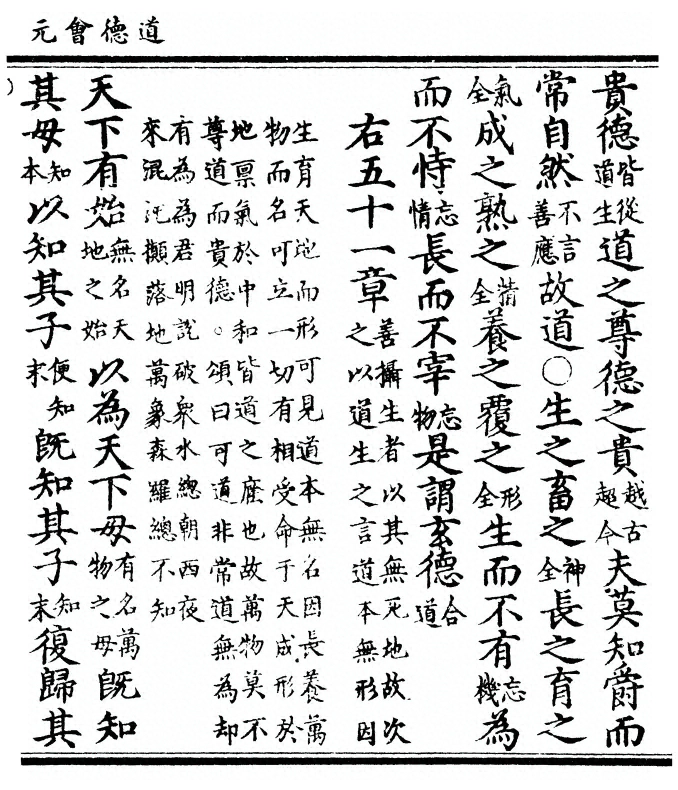 道德會元
貴德皆從道生道之尊德之貴越古超今夫莫知爵而
常自然不言善應故道○生之畜之神全長之育之
氣全成之熟之精全養之覆之形全生而不有忘機為
而不恃忘情長而不宰忘物是謂玄德合道
右五十一章善攝生者以其無死地故次之以道生之言道本無形因
生育天地而形可見道本無名因長養萬物而名可立一切有相受命于天成形於
地稟氣於中和皆道之庥也故萬物莫不尊道而貴德。頌曰可道非常道無為却
有為為君明說破衆水總朝西夜來混沌攧落地萬象森羅總不知
天下有始無名天地之始以為天下母有名萬物之母既知
其母知本以知其子便知末既知其子知末復歸其